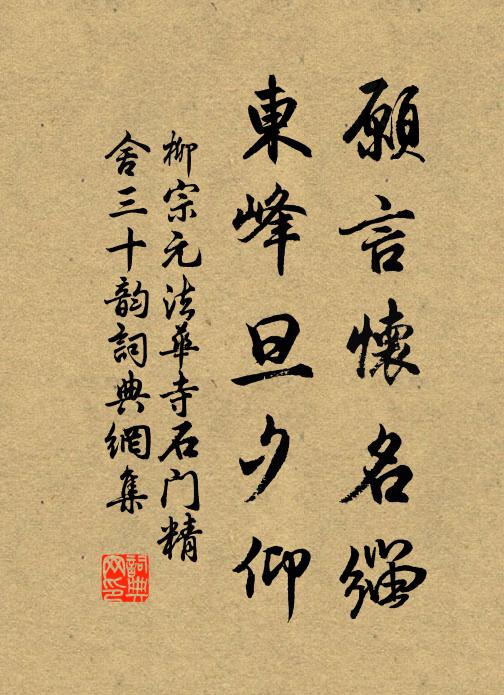 願言懷名緇
東峰旦夕仰
柳宗元法華寺石门精
舍三十韵詞典網集
詞典
网印